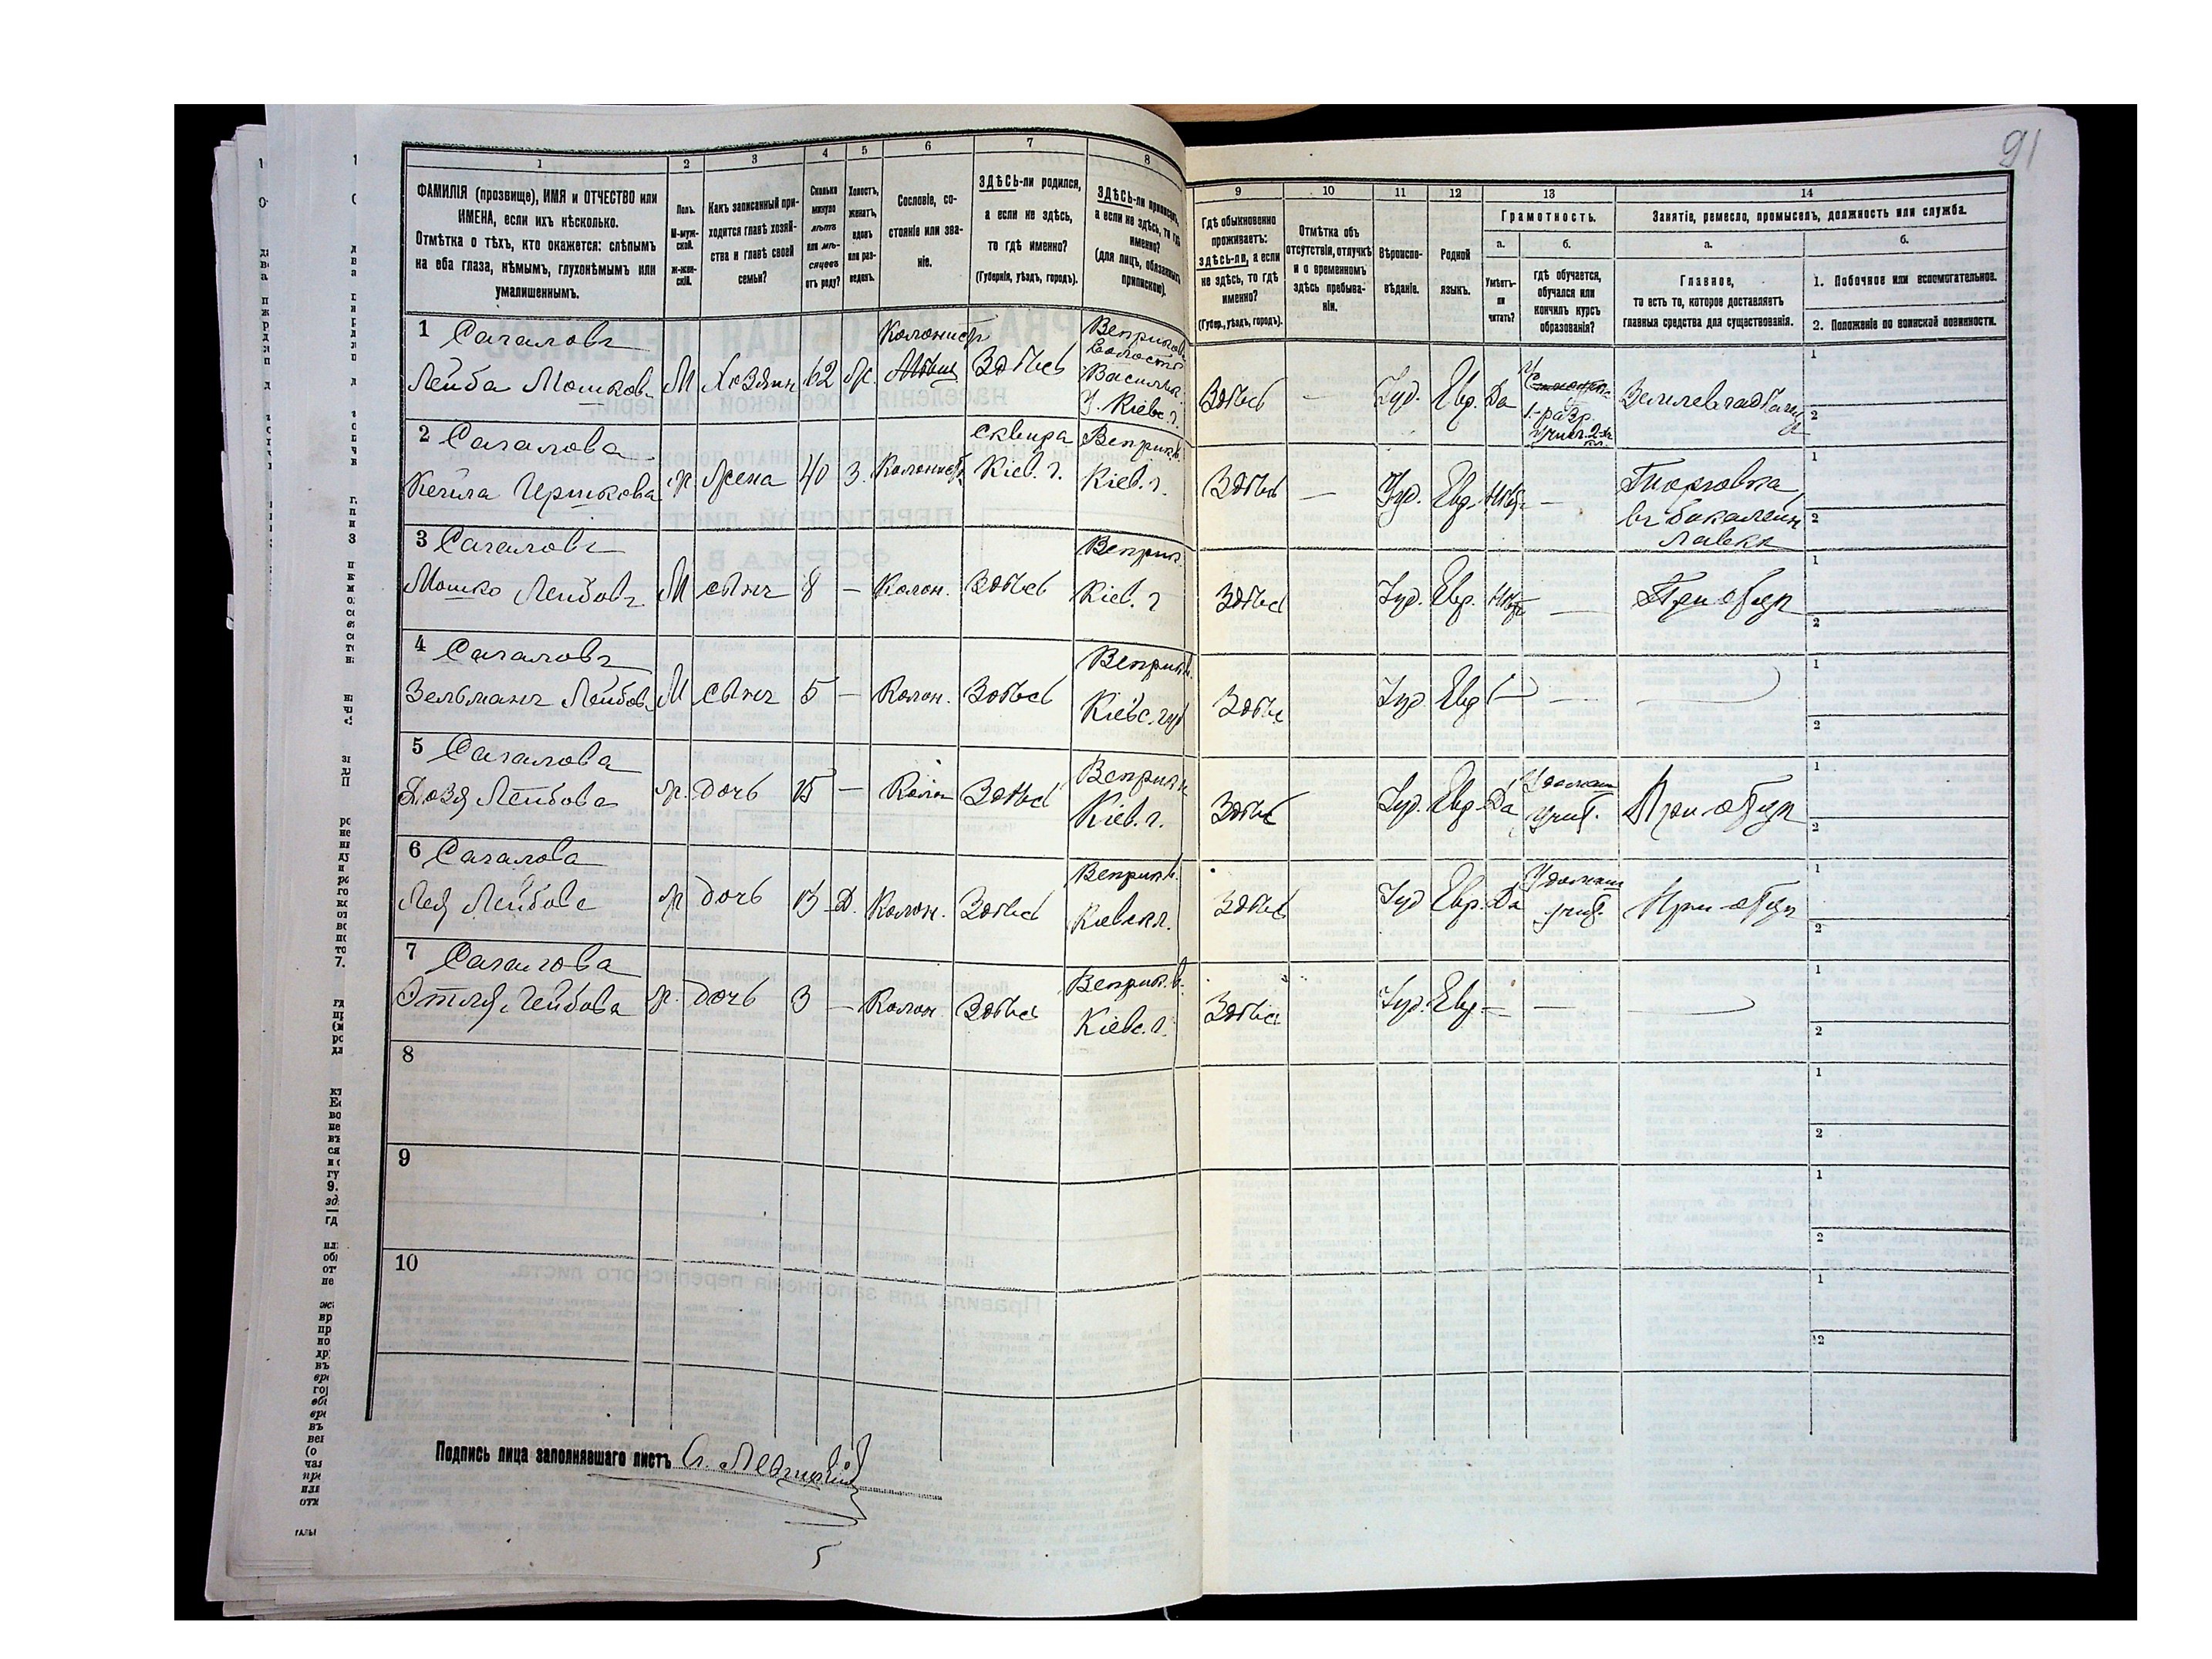 91
1 2 3 4 5 6 7 8 9 10 11 12 13 14
ФАМИЛІЯ (прозвище), ИМЯ и ОТЧЕСТВО или
ИМЕНА, если ихъ нѣсколько.
Отмѣтка о тѣхъ, кто окажется: слѣпымъ
на оба глаза, нѣмымъ, глухонѣмымъ или
умалишеннымъ.
Полъ.
М-муж-
ской.
ж-жен-
скій.
Какъ записанный при-
ходится главѣ хозяй-
ства и главѣ своей
семьи?
Сколько
минуло
лѣтъ
или мѣ-
сяцевъ
отъ роду?
Холостъ,
женатъ,
вдовъ
или раз-
веденъ.
Сословіе, со-
стояніе или зва-
ніе.
ЗДѢСЬ-ли родился,
а если не здѣсь,
то гдѣ именно?
(Губернія, уѣздъ, городъ).
ЗДѢСЬ-ли приписанъ,
а если не здѣсь, то гдѣ
именно?
(для лицъ, обязанныхъ
припискою).
Гдѣ обыкновенно
проживаетъ:
здѣсь-ли, а если
не здѣсь, то гдѣ
именно?
(Губер., уѣздъ, городъ).
Отмѣтка объ
отсутствіи, отлучкѣ
и о временномъ
здѣсь пребыва-
ніи.
Вѣроиспо-
вѣданіе.
Родной
языкъ.
Грамотность.
а.
Умѣетъ-
ли
читать?
б.
гдѣ обучается,
обучался или
кончилъ курсъ
образованія?
Занятіе, ремесло, промыселъ, должность или служба.
а.
Главное,
то есть то, которое доставляетъ
главныя средства для существованія.
б.
1. Побочное или вспомогательное.
2. Положеніе по воинской повинности.
1 Сагаловъ
Лейба Мошков. М Хозяин 62 ж. Колонистъ Здѣсь
Веприков.
Волости
Васильк.
У. Кіевс. г.
Здѣсь — Іуд. Евр. Да
1-разр.
учил. 2-
кл.
1
2
2 Сагалова
Кейла Иршкова ж. Жена 40 З. Колонист.
Сквира
Кіев. г.
Веприк.
Кіев. г.
Здѣсь — Іуд. Евр. Нѣт —
Торговка
въ бакалейн.
лавкѣ
1
2
3 Сагаловъ
Мошко Лейбовъ М сынъ 8 — Колон. Здѣсь
Веприк.
Кіев. г
Здѣсь Іуд. Евр. Нѣт — При отцѣ
1
2
4 Сагаловъ
Зельманъ Лейбов. М сынъ 5 — Колон. Здѣсь
Веприк.
Кіевс. губ
Здѣсь Іуд. Евр — —
1
2
5 Сагалова
Лейбова ж. дочь 15 — Колон Здѣсь
Веприк
Кіев. г.
Здѣсь Іуд. Евр. Да
У домаш
учит.
При отцѣ
1
2
6 Сагалова
Лея Лейбова ж дочь 13 Д. Колон. Здѣсь
Веприк.
Здѣсь Іуд Евр. Да
У домаш
учит.
При отцѣ
1
2
7 Сагалова
Этля Лейбова ж. дочь 3 — Колон. Здѣсь
Веприк. в.
Кіевс. г.
Здѣсь Іуд. Евр — —
1
2
8
1
2
9
1
2
10
1
2
Подпись лица заполнявшаго листъ